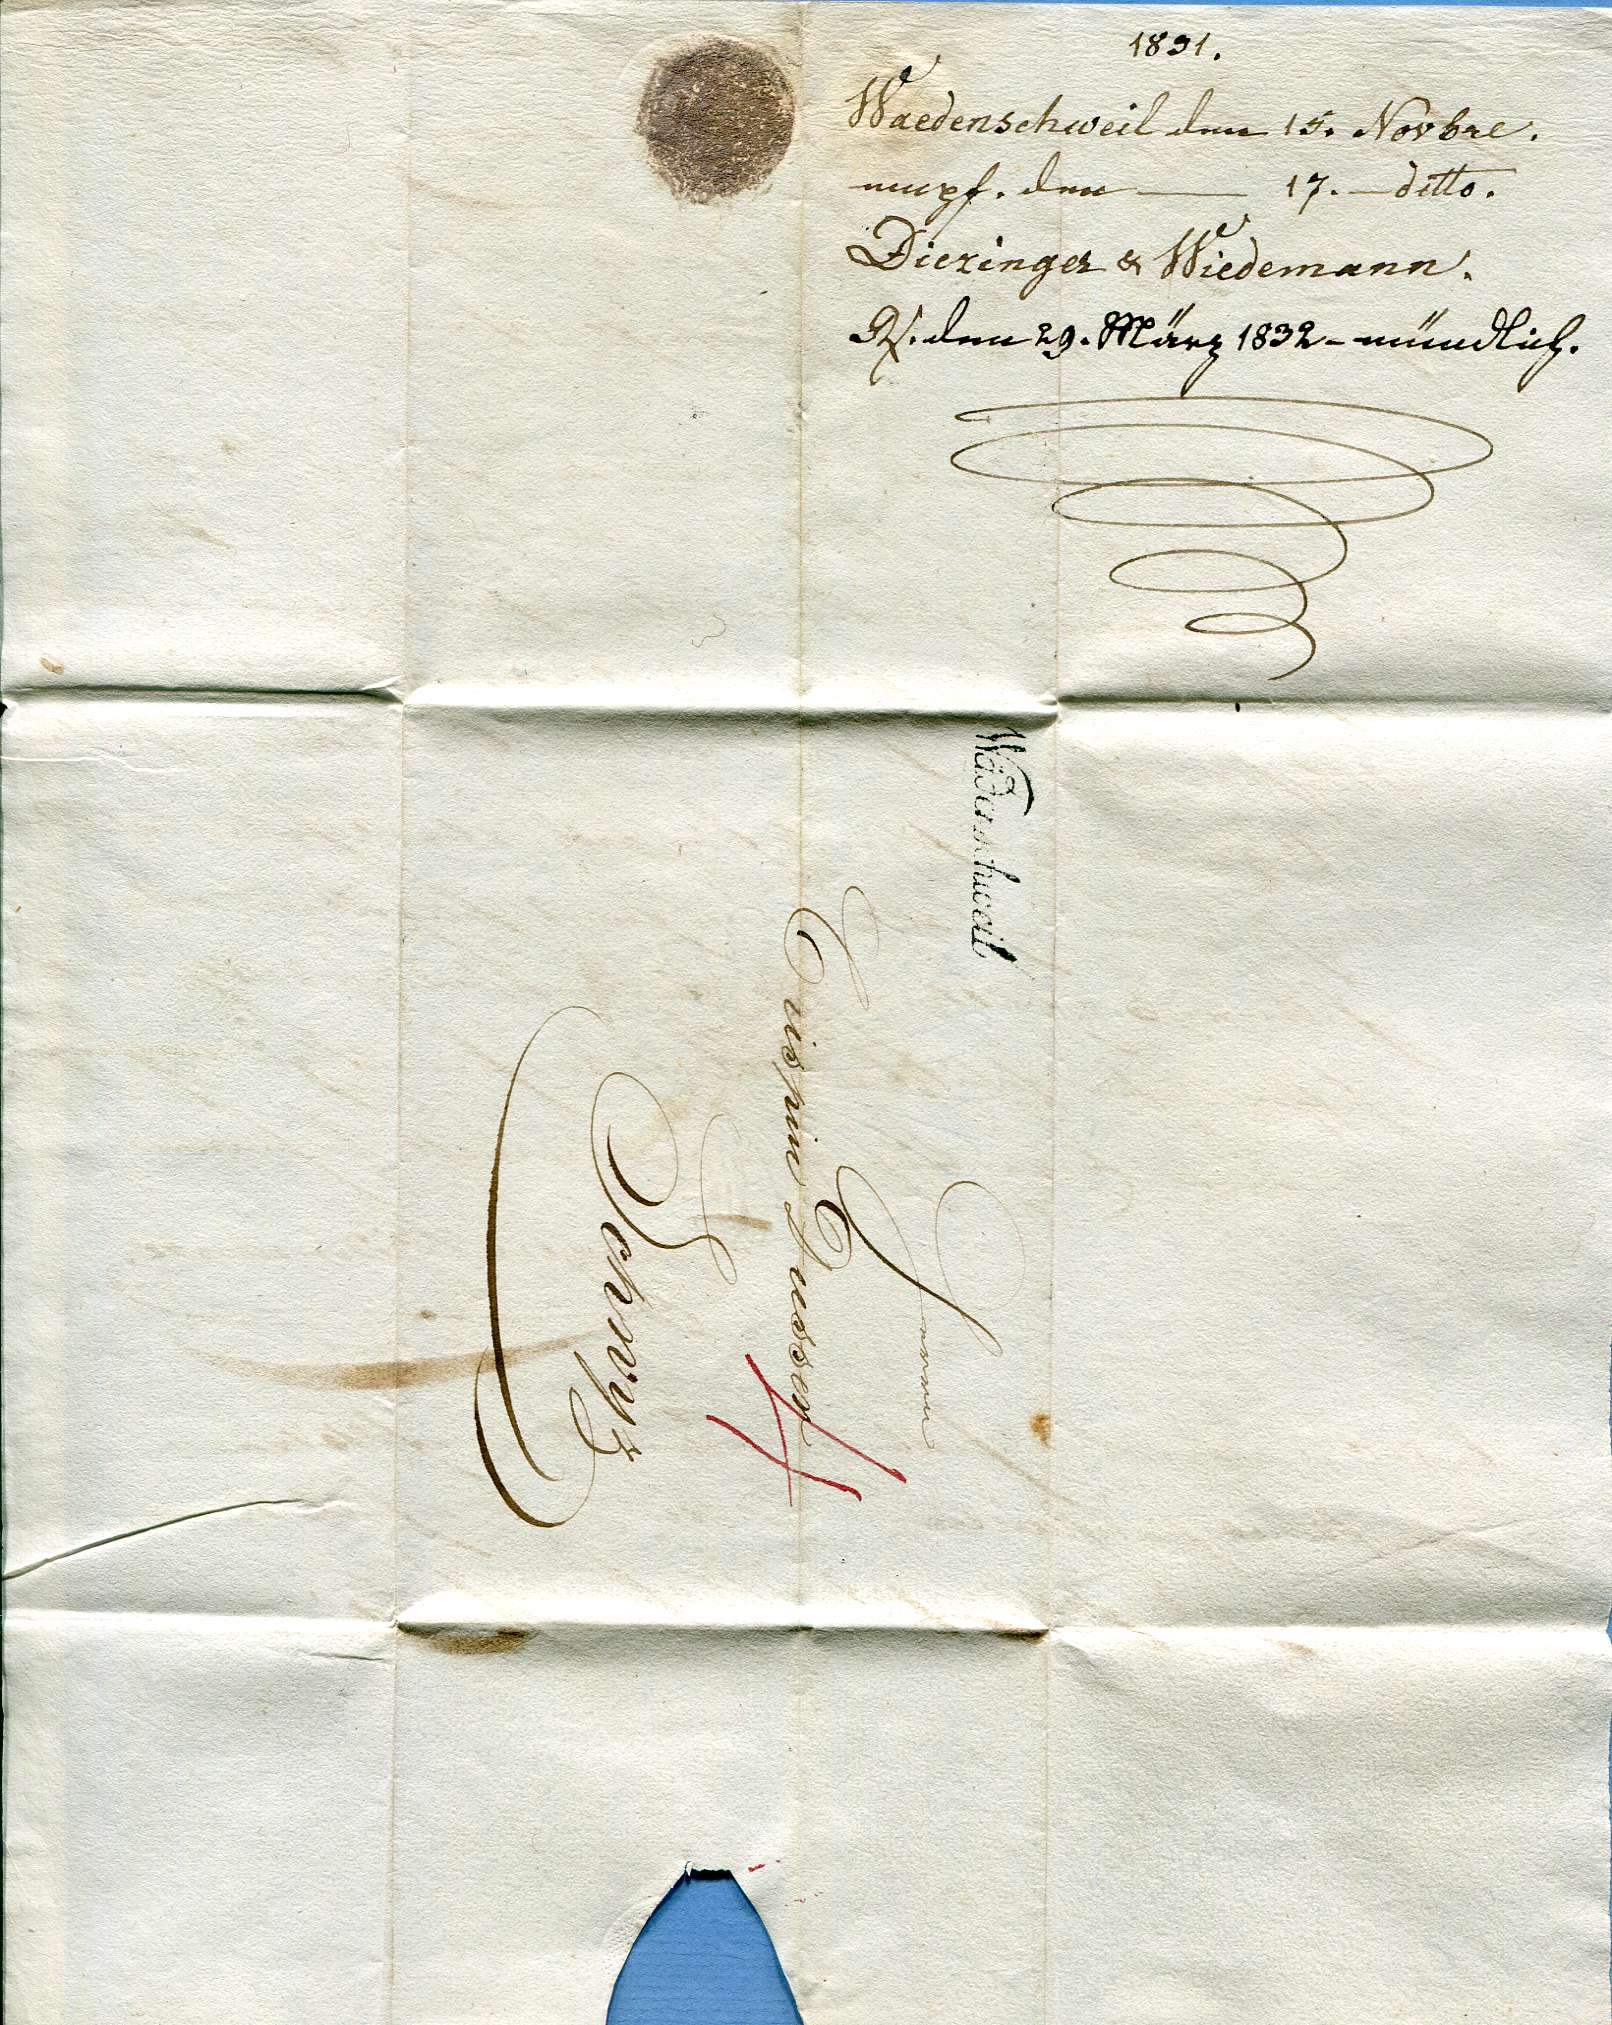 1831.
Waedenschweil den 15. Novbre.
empf. den — 17. — ditto.
Diezinger & Wiedemann.
R. den 29. März 1832 - mündlich.
Wädenschweil
Herrn
Crispin Dusser
Schwyz
4